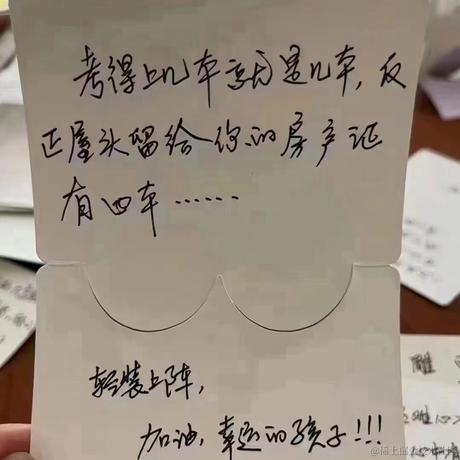 考得上几车就是几车,反
正屋头留给你的房产证
有四车……
轻装上阵,
加油,幸运的孩子!!!